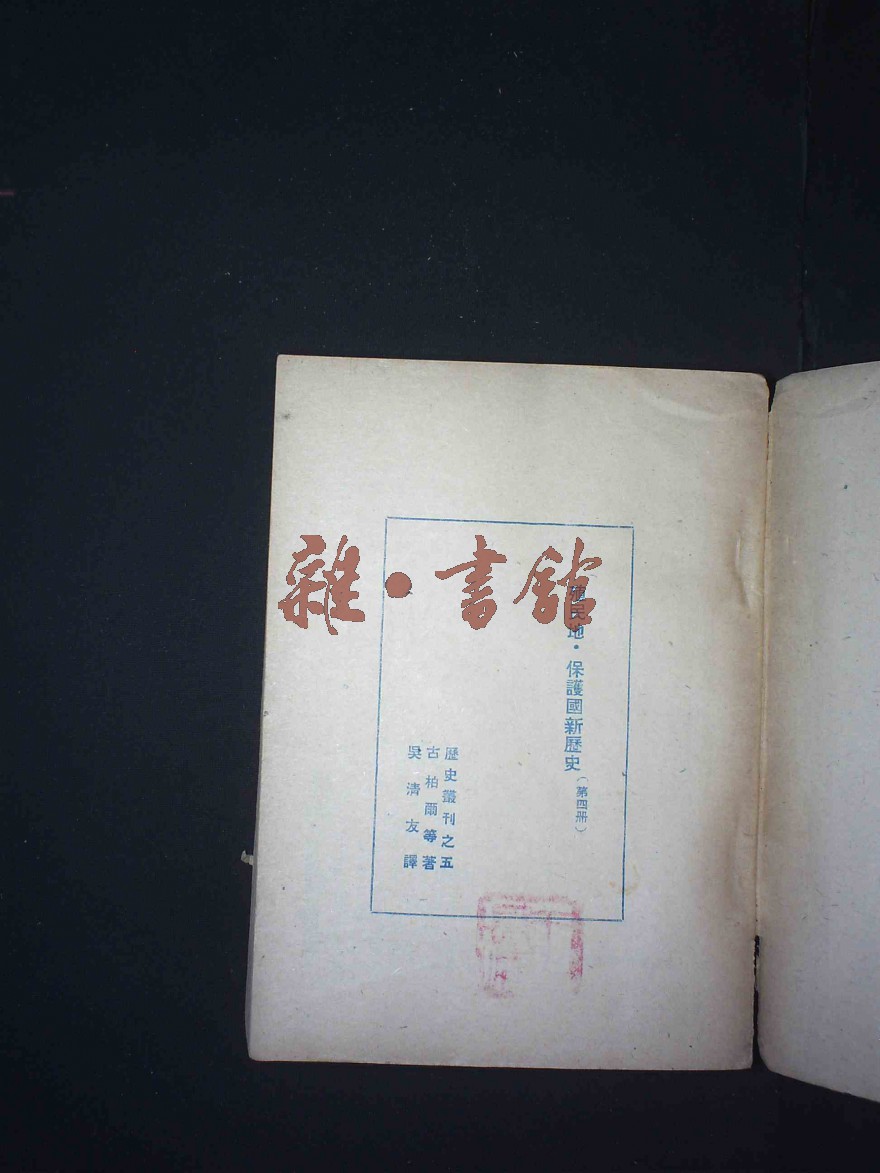 雜·書館
殖民地·保護國新歷史（第四册）
歷史叢刊之五
古柏爾等著
吳清友譯